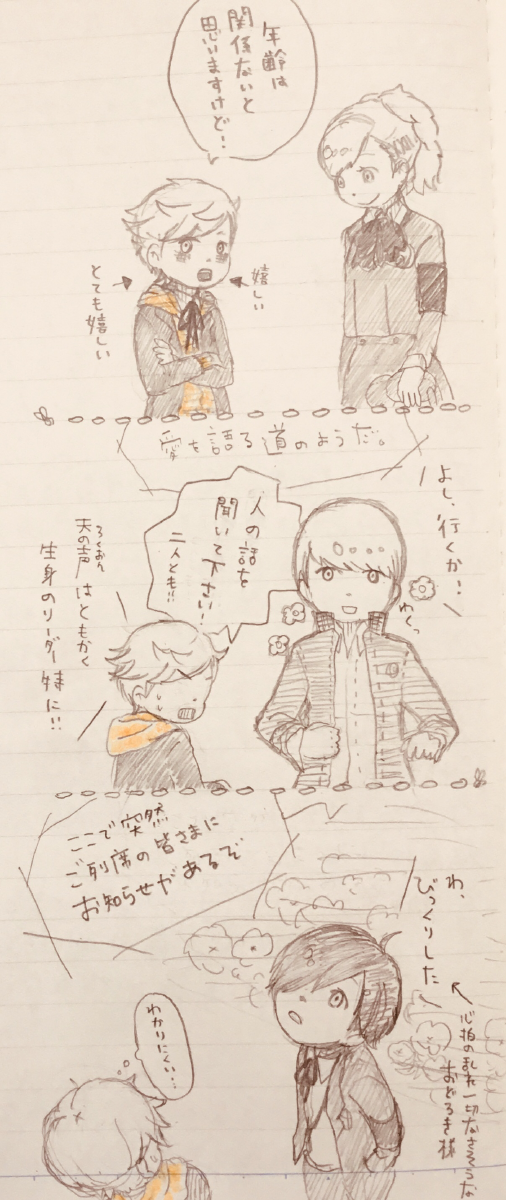 年齢は
関係ないと
思いますけど…
嬉しい
とても嬉しい
愛を語る道のようだ。
よし、行くか!
わくっ
人の話を
聞いて下さい!
二人とも!!
天の声はともかく
ろくおん
生身のリーダー特に!!
ここで突然
ご列席の皆さまに
お知らせがあるぞ
わ、
びっくりした
心拍の乱れ一切なさそうな
おどろき様
わかりにくい…